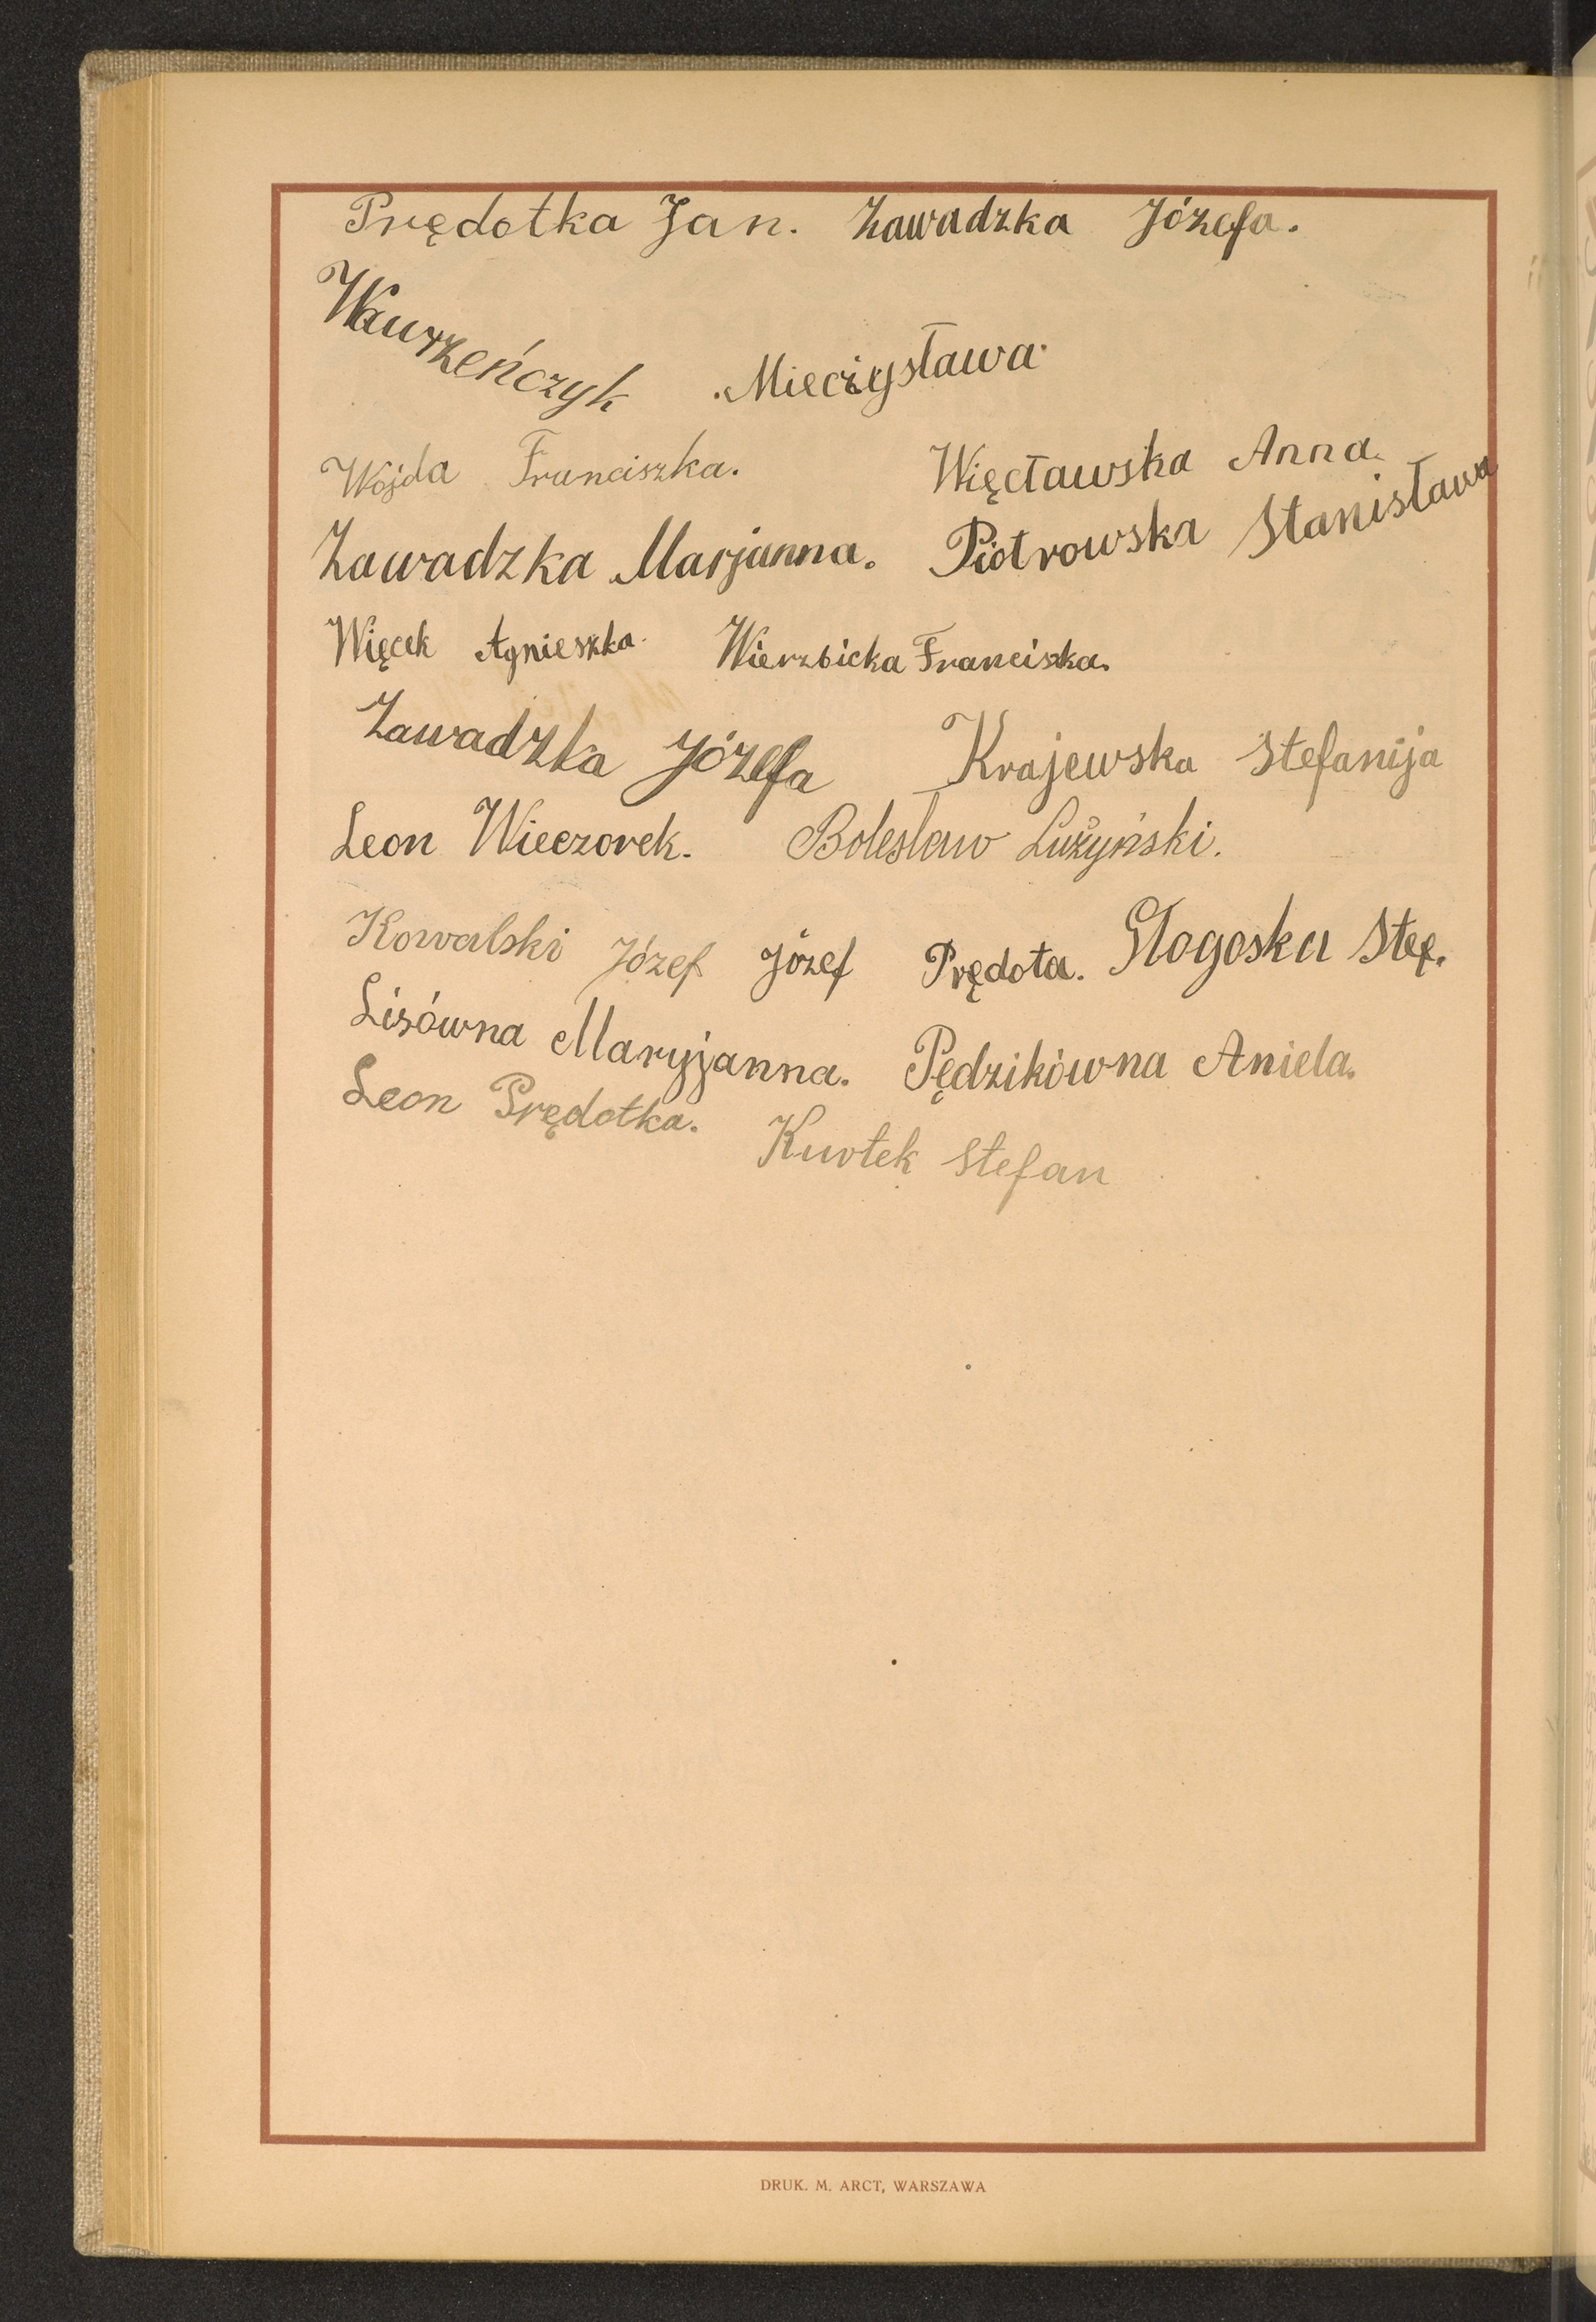 Prędotka Jan. Zawadzka Józefa.
Wawrzeńczyk Mieczysława
Wójda Franciszka. Więcławska Anna.
Zawadzka Marjanna. Piotrowska Stanisława
Więcek Agnieszka. Wierzbicka Franciszka.
Zawadzka Józefa Krajewska Stefanija
Leon Wieczorek. Bolesław Lużyński.
Kowalski Józef Józef Prędota. Głogoska Stef.
Lisówna Maryjanna. Pędzikówna Aniela.
Leon Prędotka. Kurtek Stefan
DRUK. M. ARCT, WARSZAWA